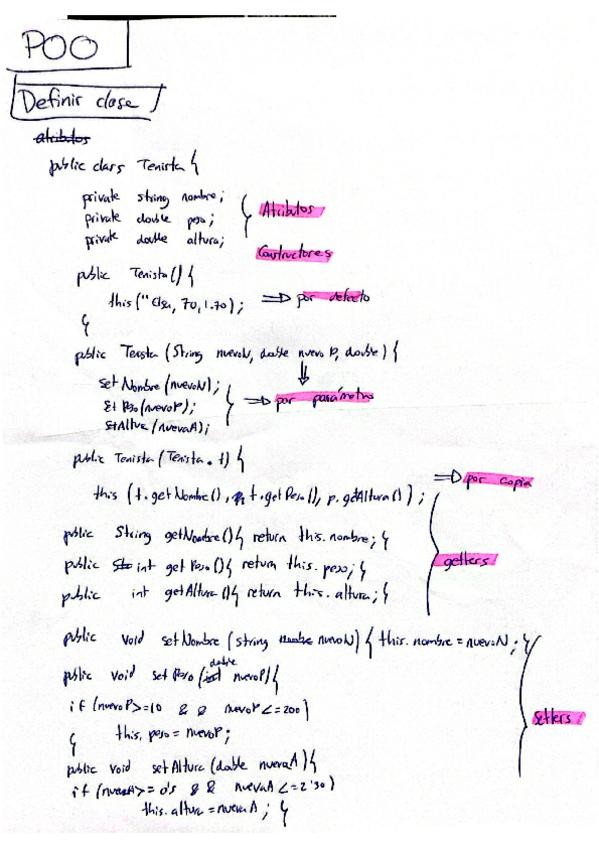 POO
Definir clase
atributos
public class Tenista {
private string nombre;
private double peso; } Atributos
private double altura;
Constructores
public Tenista() {
this ("Elsa, 70, 1.70); => por defecto
}
public Tensta (String nuevoN, double nuevo P, double) {
set Nombre (nuevoN);
set Peso (nuevoP); } => por parámetros
setAltura (nuevaA);
public Tenista (Tenista t) {
=> por copia
this (t.getNombre(), t.getPeso(), p.getAltura());
public String getNombre(){ return this.nombre; }
public int get Peso (){ return this.peso; } getters
public int getAltura (){ return this.altura; }
public void setNombre (string nombre nuevoN) { this.nombre = nuevoN; }
public void set Peso (int double nuevoP){
if (nuevoP>=10 && nuevoP<=200)
} this.peso = nuevoP; setters
public void setAltura (double nuevaA){
if (nuevaA>= 0's && nuevaA <=2'30)
this.altura = nuevaA; }